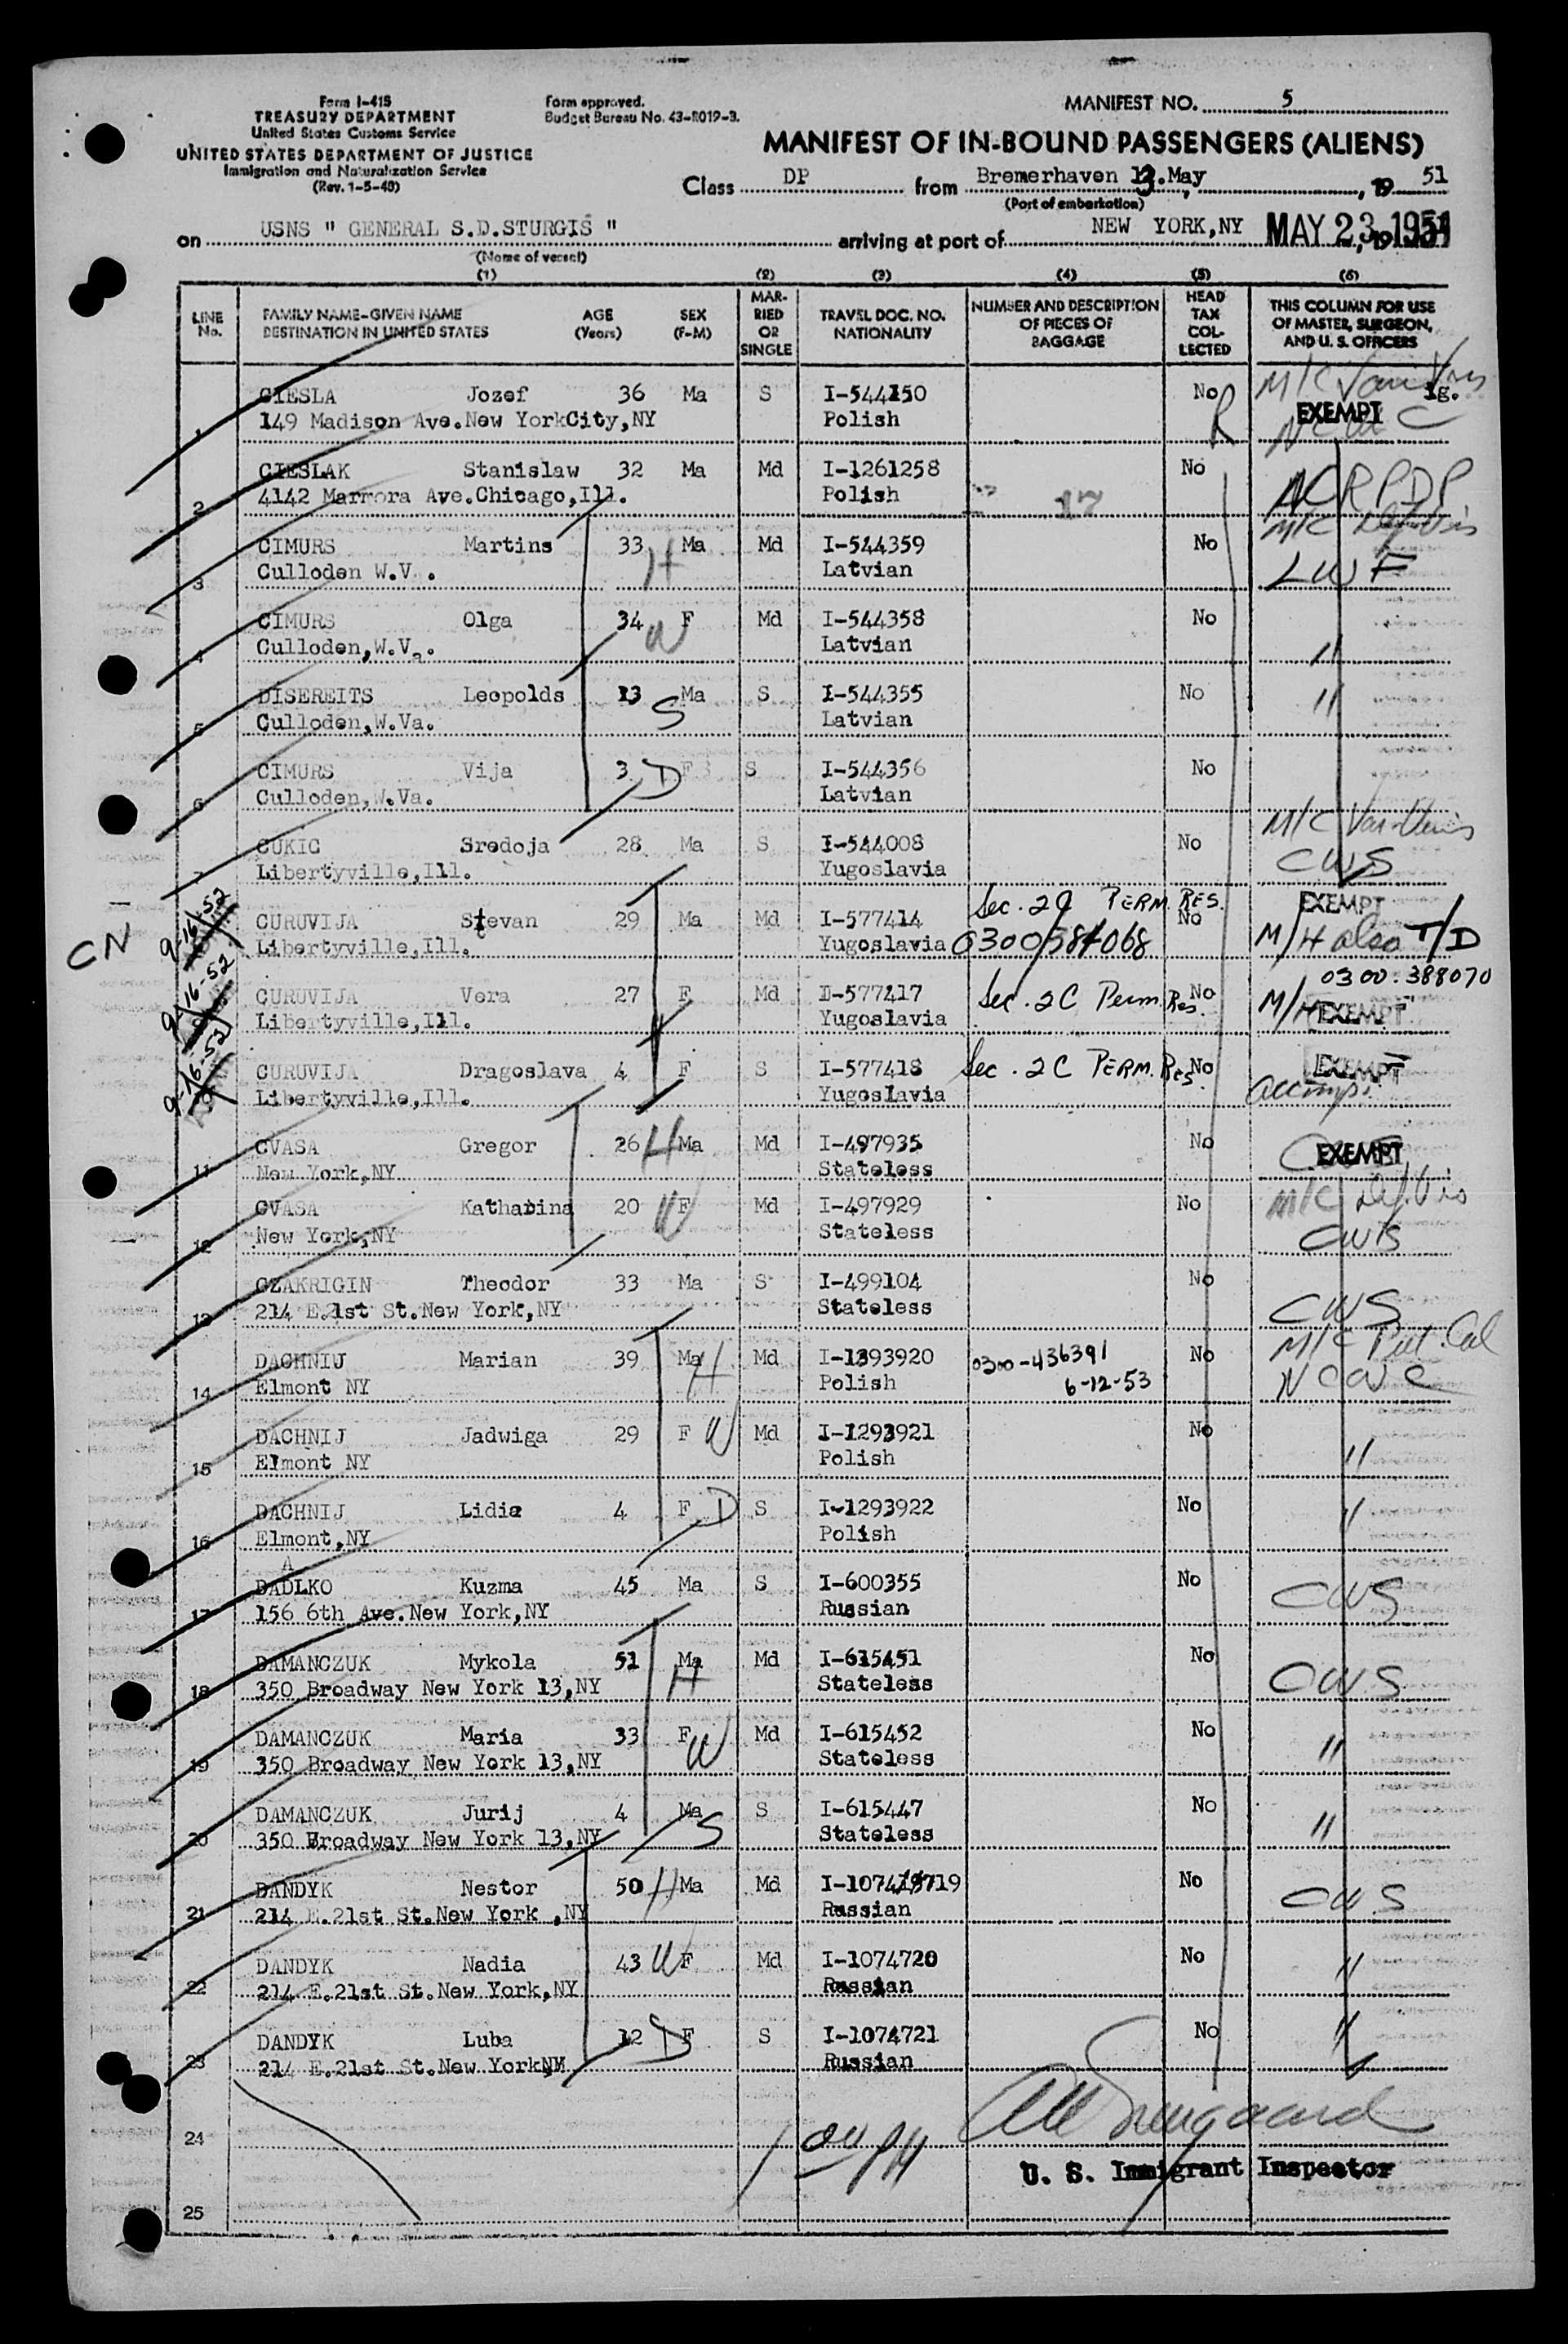 Form I-415
TREASURY DEPARTMENT
United States Customs Service
UNITED STATES DEPARTMENT OF JUSTICE
Immigration and Naturalization Service
(Rev. 1-5-48)
Form approved.
Budget Bureau No. 43-R019-3.
MANIFEST NO. 5
MANIFEST OF IN-BOUND PASSENGERS (ALIENS)
Class DP from Bremerhaven 13.May, 19 51
(Port of embarkation)
on USNS " GENERAL S.D.STURGIS " arriving at port of NEW YORK,NY MAY 23 1951
(Name of vessel)
(1) (2) (3) (4) (5) (6)
LINE No. FAMILY NAME-GIVEN NAME DESTINATION IN UNITED STATES AGE (Years) SEX (F-M) MARRIED OR SINGLE TRAVEL DOC. NO. NATIONALITY NUMBER AND DESCRIPTION OF PIECES OF BAGGAGE HEAD TAX COLLECTED THIS COLUMN FOR USE OF MASTER, SURGEON, AND U. S. OFFICERS
1 CIESLA Jozef 36 Ma S I-544150 No EXEMPT
149 Madison Ave.New YorkCity,NY Polish R
2 CIESLAK Stanislaw 32 Ma Md I-1261258 No NCRPDP
4142 Marmora Ave.Chicago,Ill. Polish 17
M/C Def Vis
3 CIMURS Martins 33 H Ma Md I-544359 No LWF
Culloden W.V . Latvian
4 CIMURS Olga 34 W F Md I-544358 No "
Culloden,W.Va. Latvian
5 DISEREITS Leopolds 13 S Ma S I-544355 No "
Culloden,W.Va. Latvian
6 CIMURS Vija 3 D F S I-544356 No
Culloden,W.Va. Latvian
7 CUKIC Sredoja 28 Ma S I-544008 No M/C
Libertyville,Ill. Yugoslavia CWS
CN 9-16-52 CURUVIJA Stevan 29 Ma Md I-577414 Sec. 2C PERM. RES. No EXEMPT
Libertyville,Ill. Yugoslavia M/H also T/D
9-16-52 CURUVIJA Vera 27 F Md I-577417 Sec. 2C Perm. Res. No 0300-388070
Libertyville,Ill. Yugoslavia M/H EXEMPT
9-16-52 CURUVIJA Dragoslava 4 F S I-577418 Sec. 2C PERM. RES. No EXEMPT
Libertyville,Ill. Yugoslavia accomp.
11 CVASA Gregor 26 H Ma Md I-497935 No EXEMPT
New York,NY Stateless
12 CVASA Katharina 20 W F Md I-497929 No M/C Def. Vis
New York,NY Stateless CWS
13 CZAKRIGIN Theodor 33 Ma S I-499104 No CWS
214 E.21st St.New York,NY Stateless
14 DACHNIJ Marian 39 Ma H Md I-1293920 0300-436391 No M/C
Elmont NY Polish 6-12-53 NCWC
15 DACHNIJ Jadwiga 29 F W Md I-1293921 No "
Elmont NY Polish
16 DACHNIJ Lidia 4 F D S I-1293922 No "
Elmont,NY Polish
A
17 DADLKO Kuzma 45 Ma S I-600355 No CWS
156 6th Ave.New York,NY Russian
18 DAMANCZUK Mykola 51 Ma H Md I-615451 No CWS
350 Broadway New York 13,NY Stateless
19 DAMANCZUK Maria 33 F W Md I-615452 No "
350 Broadway New York 13,NY Stateless
20 DAMANCZUK Jurij 4 Ma S S I-615447 No "
350 Broadway New York 13,NY Stateless
21 DANDYK Nestor 50 H Ma Md I-1074719 No CWS
214 E.21st St.New York ,NY Russian
22 DANDYK Nadia 43 W F Md I-1074720 No "
214 E.21st St.New York,NY Russian
23 DANDYK Luba 12 D F S I-1074721 No "
214 E.21st St.New YorkNY Russian
24
U. S. Immigrant Inspector
25